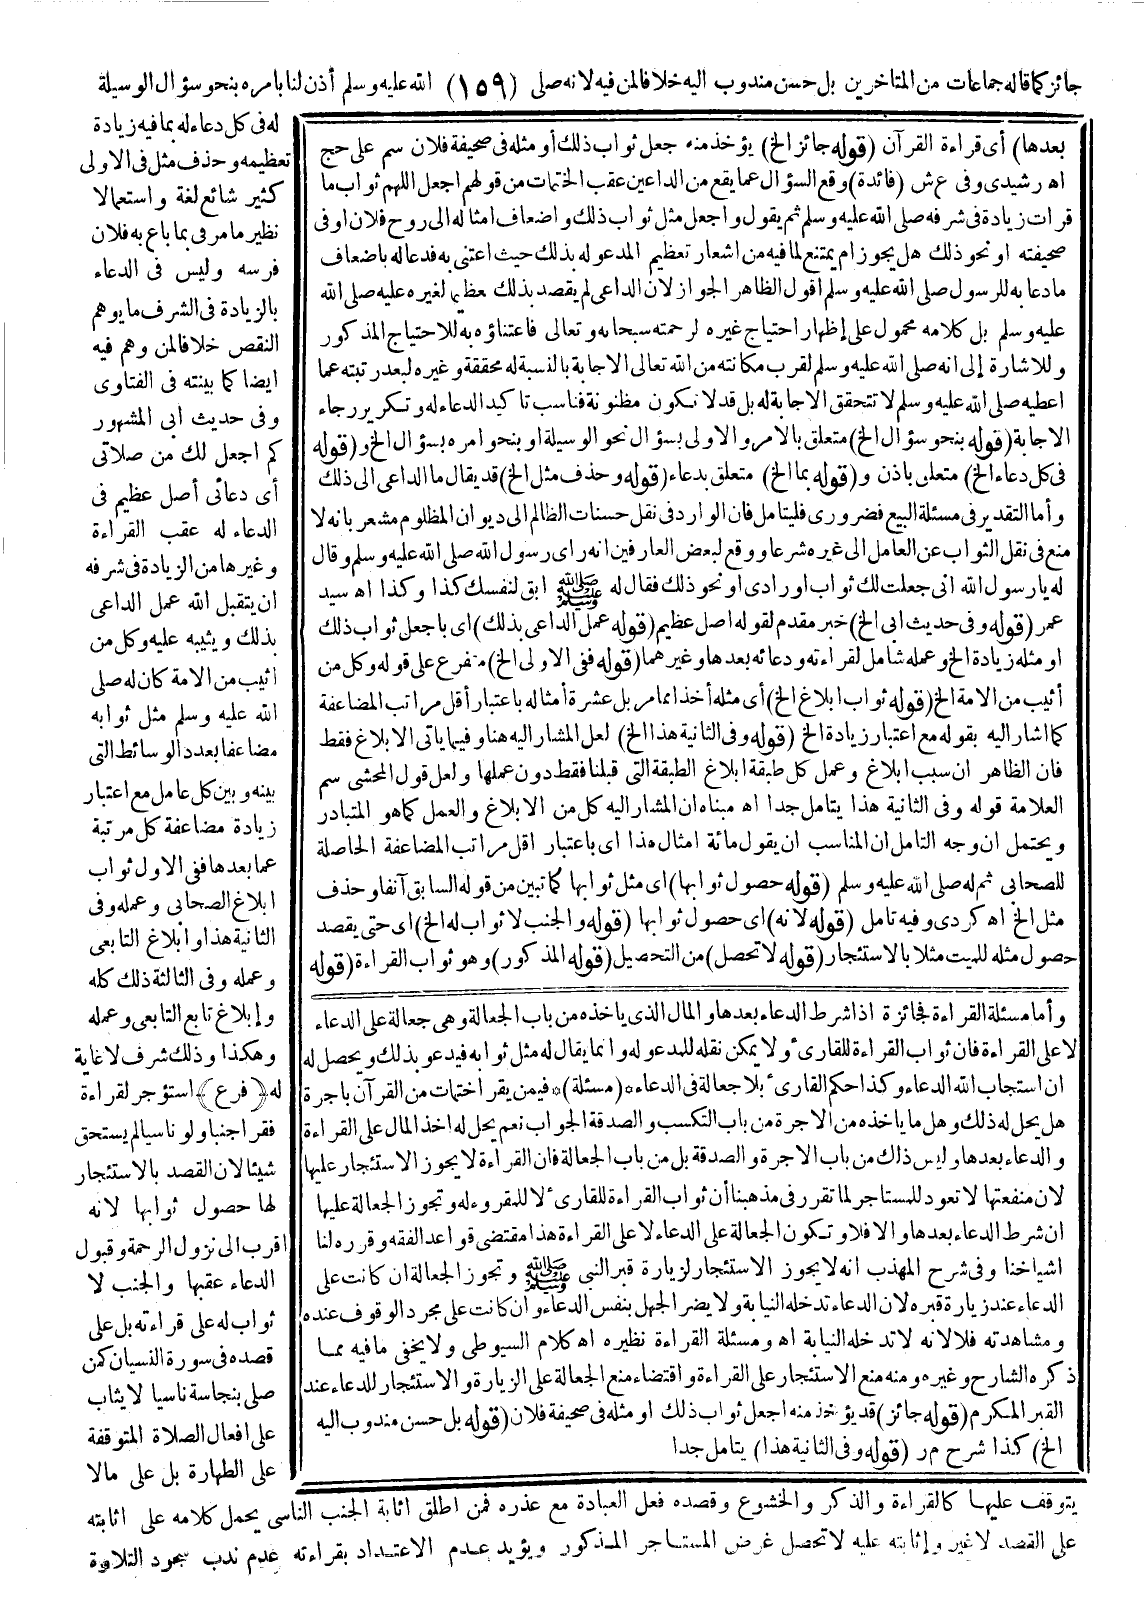 جائز كما قاله جماعات من المتاخرين بل حسن مندوب اليه خلافا لمن فيه لانه صلى (١٥٩) الله عليه وسلم أذن لنا بامره بنحو سؤال الوسيلة
له فى كل دعاء له بما فيه زيادة
تعظيمه وحذف مثل فى الاولى
كثير شائع لغة واستعمالا
نظير ما مر فى بما باع به فلان
فرسه وليس فى الدعاء
بالزيادة فى الشرف ما يوهم
النقص خلافا لمن وهم فيه
ايضا كما بينته فى الفتاوى
وفى حديث ابى المشهور
كم اجعل لك من صلاتى
أى دعائى أصل عظيم فى
الدعاء له عقب القراءة
وغيرها من الزيادة فى شرفه
ان يتقبل الله عمل الداعى
بذلك ويثيبه عليه وكل من
اثيب من الامة كان له صلى
الله عليه وسلم مثل ثوابه
مضاعفا بعدد الوسائط التى
بينه وبين كل عامل مع اعتبار
زيادة مضاعفة كل مرتبة
عما بعدها ففى الاول ثواب
ابلاغ الصحابى وعمله وفى
الثانية هذا وابلاغ التابعى
وعمله وفى الثالثة ذلك كله
وإبلاغ تابع التابعى وعمله
وهكذا وذلك شرف لا غاية
له (فرع) استؤجر لقراءة
فقرا جنبا ولو ناسيا لم يستحق
شيئا لان القصد بالاستئجار
لها حصول ثوابها لانه
اقرب الى نزول الرحمة وقبول
الدعاء عقبها والجنب لا
ثواب له على قراءته بل على
قصده فى سورة النسيان كمن
صلى بنجاسة ناسيا لا يثاب
على افعال الصلاة المتوقفة
على الطهارة بل على مالا
يتوقف عليها كالقراءة والذكر والخشوع وقصده فعل العبادة مع عذره فمن اطلق اثابة الجنب الناسى يحمل كلامه على اثابته
على القصد لا غير وإثابته عليه لا تحصل غرض المستاجر المذكور ويؤيد عدم الاعتداد بقراءته عدم ندب سجود التلاوة
بعدها) أى قراءة القرآن (قوله جائز الخ) يؤخذ منه جعل ثواب ذلك أو مثله فى صحيفة فلان سم على حج
اهـ رشيدى وفى ع ش (فائدة) وقع السؤال عما يقع من الداعين عقب الختمات من قولهم اجعل اللهم ثواب ما
قرات زيادة فى شرفه صلى الله عليه وسلم ثم يقول واجعل مثل ثواب ذلك واضعاف امثاله الى روح فلان او فى
صحيفته او نحو ذلك هل يجوز ام يمتنع لما فيه من اشعار تعظيم المدعو له بذلك حيث اعتنى به فدعا له باضعاف
ما دعا به للرسول صلى الله عليه وسلم اقول الظاهر الجواز لان الداعى لم يقصد بذلك عظيما لغيره عليه صلى الله
عليه وسلم بل كلامه محمول على إظهار احتياج غيره لرحمته سبحانه وتعالى فاعتناؤه به للاحتياج المذكور
وللاشارة إلى انه صلى الله عليه وسلم لقرب مكانته من الله تعالى الاجابة بالنسبة له محققة وغيره لبعد رتبته عما
اعطيه صلى الله عليه وسلم لا تتحقق الاجابة له بل قد لا تكون مظنونة فناسب تاكيد الدعاء له وتكرير رجاء
الاجابة (قوله بنحو سؤال الخ) متعلق بالامر والاولى بسؤال نحو الوسيلة او بنحو امره بسؤال الخ و (قوله
فى كل دعاء الخ) متعلق باذن و (قوله بما الخ) متعلق بدعاء (قوله وحذف مثل الخ) قد يقال ما الداعى الى ذلك
وأما التقدير فى مسئلة البيع فضرورى فليتامل فان الوارد فى نقل حسنات الظالم الى ديوان المظلوم مشعر بانه لا
منع فى نقل الثواب عن العامل الى غيره شرعا ووقع لبعض العارفين انه راى رسول الله صلى الله عليه وسلم وقال
له يا رسول الله انى جعلت لك ثواب اورادى او نحو ذلك فقال له ﷺ ابق لنفسك كذا وكذا اهـ سيد
عمر (قوله وفى حديث ابى الخ) خبر مقدم لقوله اصل عظيم (قوله عمل الداعى بذلك) اى باجعل ثواب ذلك
او مثله زيادة الخ وعمله شامل لقراءته ودعائه بعدها وغيرهما (قوله ففى الاولى الخ) متفرع على قوله وكل من
أثيب من الامة الخ (قوله ثواب ابلاغ الخ) أى مثله أخذا مما مر بل عشرة أمثاله باعتبار أقل مراتب المضاعفة
كما اشار اليه بقوله مع اعتبار زيادة الخ (قوله وفى الثانية هذا الخ) لعل المشار اليه هنا وفيما ياتى الابلاغ فقط
فان الظاهر ان سبب ابلاغ وعمل كل طبقة ابلاغ الطبقة التى قبلنا فقط دون عملها ولعل قول المحشى سم
العلامة قوله وفى الثانية هذا يتامل جدا اهـ مبناه ان المشار اليه كل من الابلاغ والعمل كما هو المتبادر
ويحتمل ان وجه التامل ان المناسب ان يقول مائة امثال هذا اى باعتبار اقل مراتب المضاعفة الحاصلة
للصحابى ثم له صلى الله عليه وسلم (قوله حصول ثوابها) اى مثل ثوابها كما تبين من قوله السابق آنفا وحذف
مثل الخ اهـ كردى وفيه تامل (قوله لانه) اى حصول ثوابها (قوله والجنب لا ثواب له الخ) اى حتى يقصد
حصول مثله للميت مثلا بالاستئجار (قوله لا تحصل) من التحصيل (قوله المذكور) وهو ثواب القراءة (قوله
وأما مسئلة القراءة فجائزة اذا شرط الدعاء بعدها والمال الذى ياخذه من باب الجعالة وهى جعالة على الدعاء
لا على القراءة فان ثواب القراءة للقارىء ولا يمكن نقله للمدعو له وانما يقال له مثل ثوابه فيدعو بذلك ويحصل له
ان استجاب الله الدعاء وكذا حكم القارىء بلا جعالة فى الدعاء * (مسئلة) * فيمن يقرا ختمات من القرآن باجرة
هل يحل له ذلك وهل ما ياخذه من الاجرة من باب التكسب والصدقة الجواب نعم يحل له اخذ المال على القراءة
والدعاء بعدها وليس ذلك من باب الاجرة والصدقة بل من باب الجعالة فان القراءة لا يجوز الاستئجار عليها
لان منفعتها لا تعود للمستاجر لما تقرر فى مذهبنا أن ثواب القراءة للقارىء لا للمقروء له وتجوز الجعالة عليها
ان شرط الدعاء بعدها والا فلا وتكون الجعالة على الدعاء لا على القراءة هذا مقتضى قواعد الفقه وقرره لنا
اشياخنا وفى شرح المهذب انه لا يجوز الاستئجار لزيارة قبر النبى ﷺ وتجوز الجعالة ان كانت على
الدعاء عند زيارة قبره لان الدعاء تدخله النيابة ولا يضر الجهل بنفس الدعاء وان كانت على مجرد الوقوف عنده
ومشاهدته فلا لانه لا تدخله النيابة اهـ ومسئلة القراءة نظيره اهـ كلام السيوطى ولا يخفى ما فيه مما
ذكره الشارح وغيره ومنه منع الاستئجار على القراءة واقتضاء منع الجعالة على الزيارة والاستئجار للدعاء عند
القبر المكرم (قوله جائز) قد يؤخذ منه اجعل ثواب ذلك او مثله فى صحيفة فلان (قوله بل حسن مندوب اليه
الخ) كذا شرح مر (قوله وفى الثانية هذا) يتامل جدا